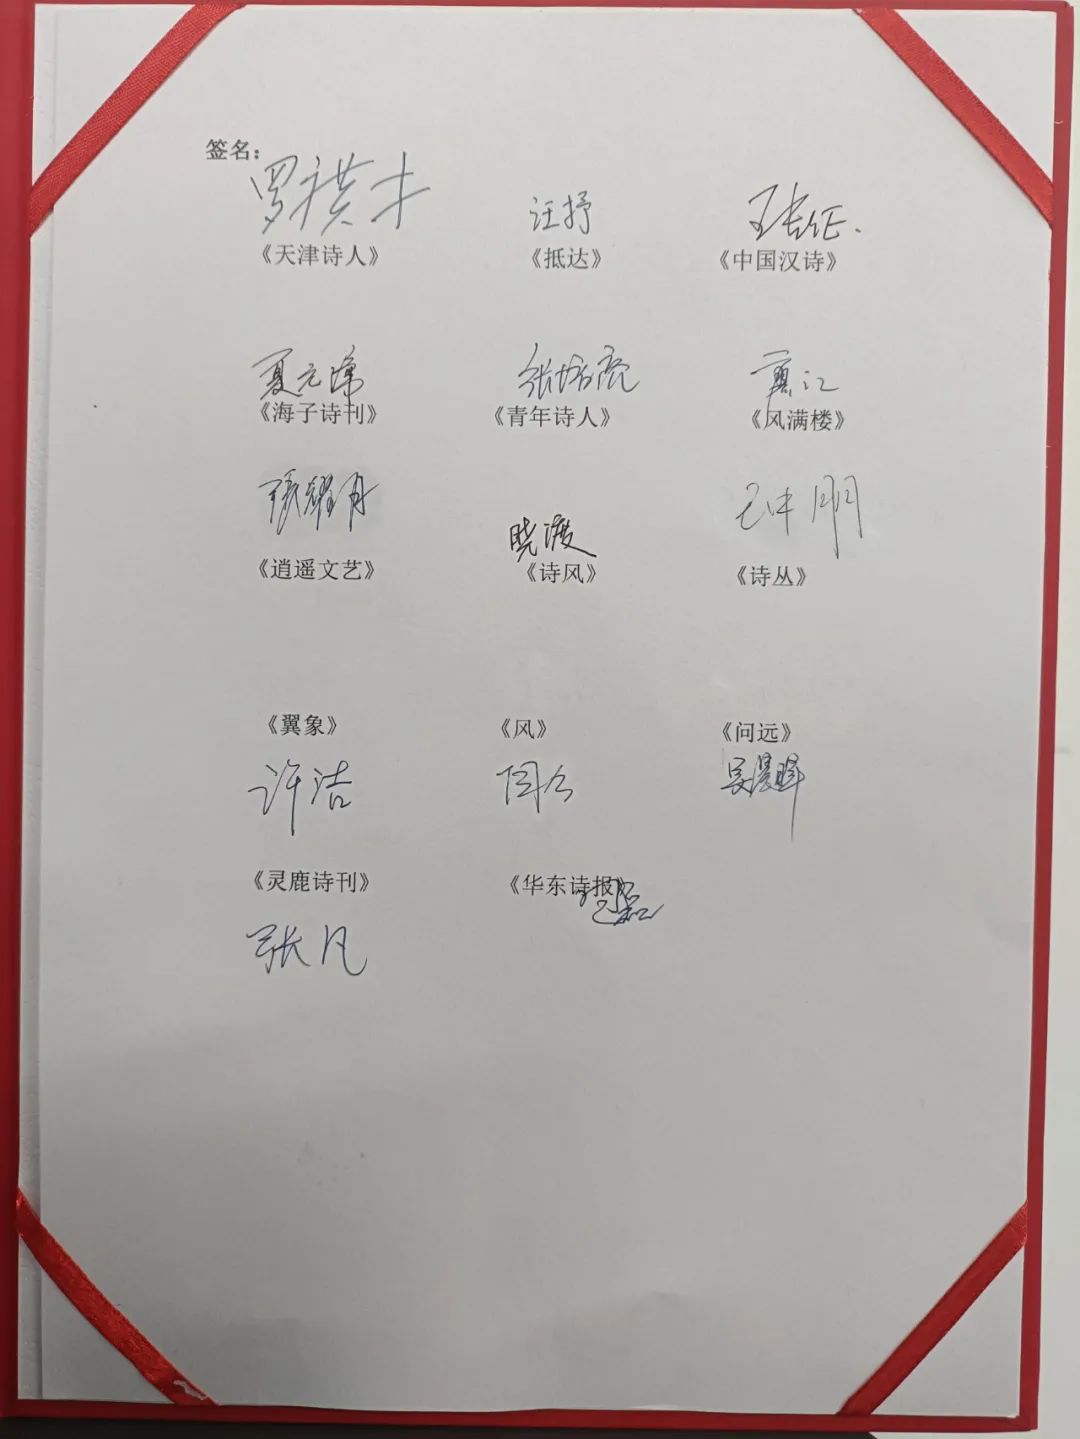 签名：
罗祺才 汪抒 王长征
《天津诗人》 《抵达》 《中国汉诗》
夏元
《海子诗刊》 《青年诗人》 《风满楼》
张耀月 晓渡
《逍遥文艺》 《诗风》 《诗丛》
《翼象》 《风》 《问远》
许洁 吴晨晖
《灵鹿诗刊》 《华东诗报》
张凡